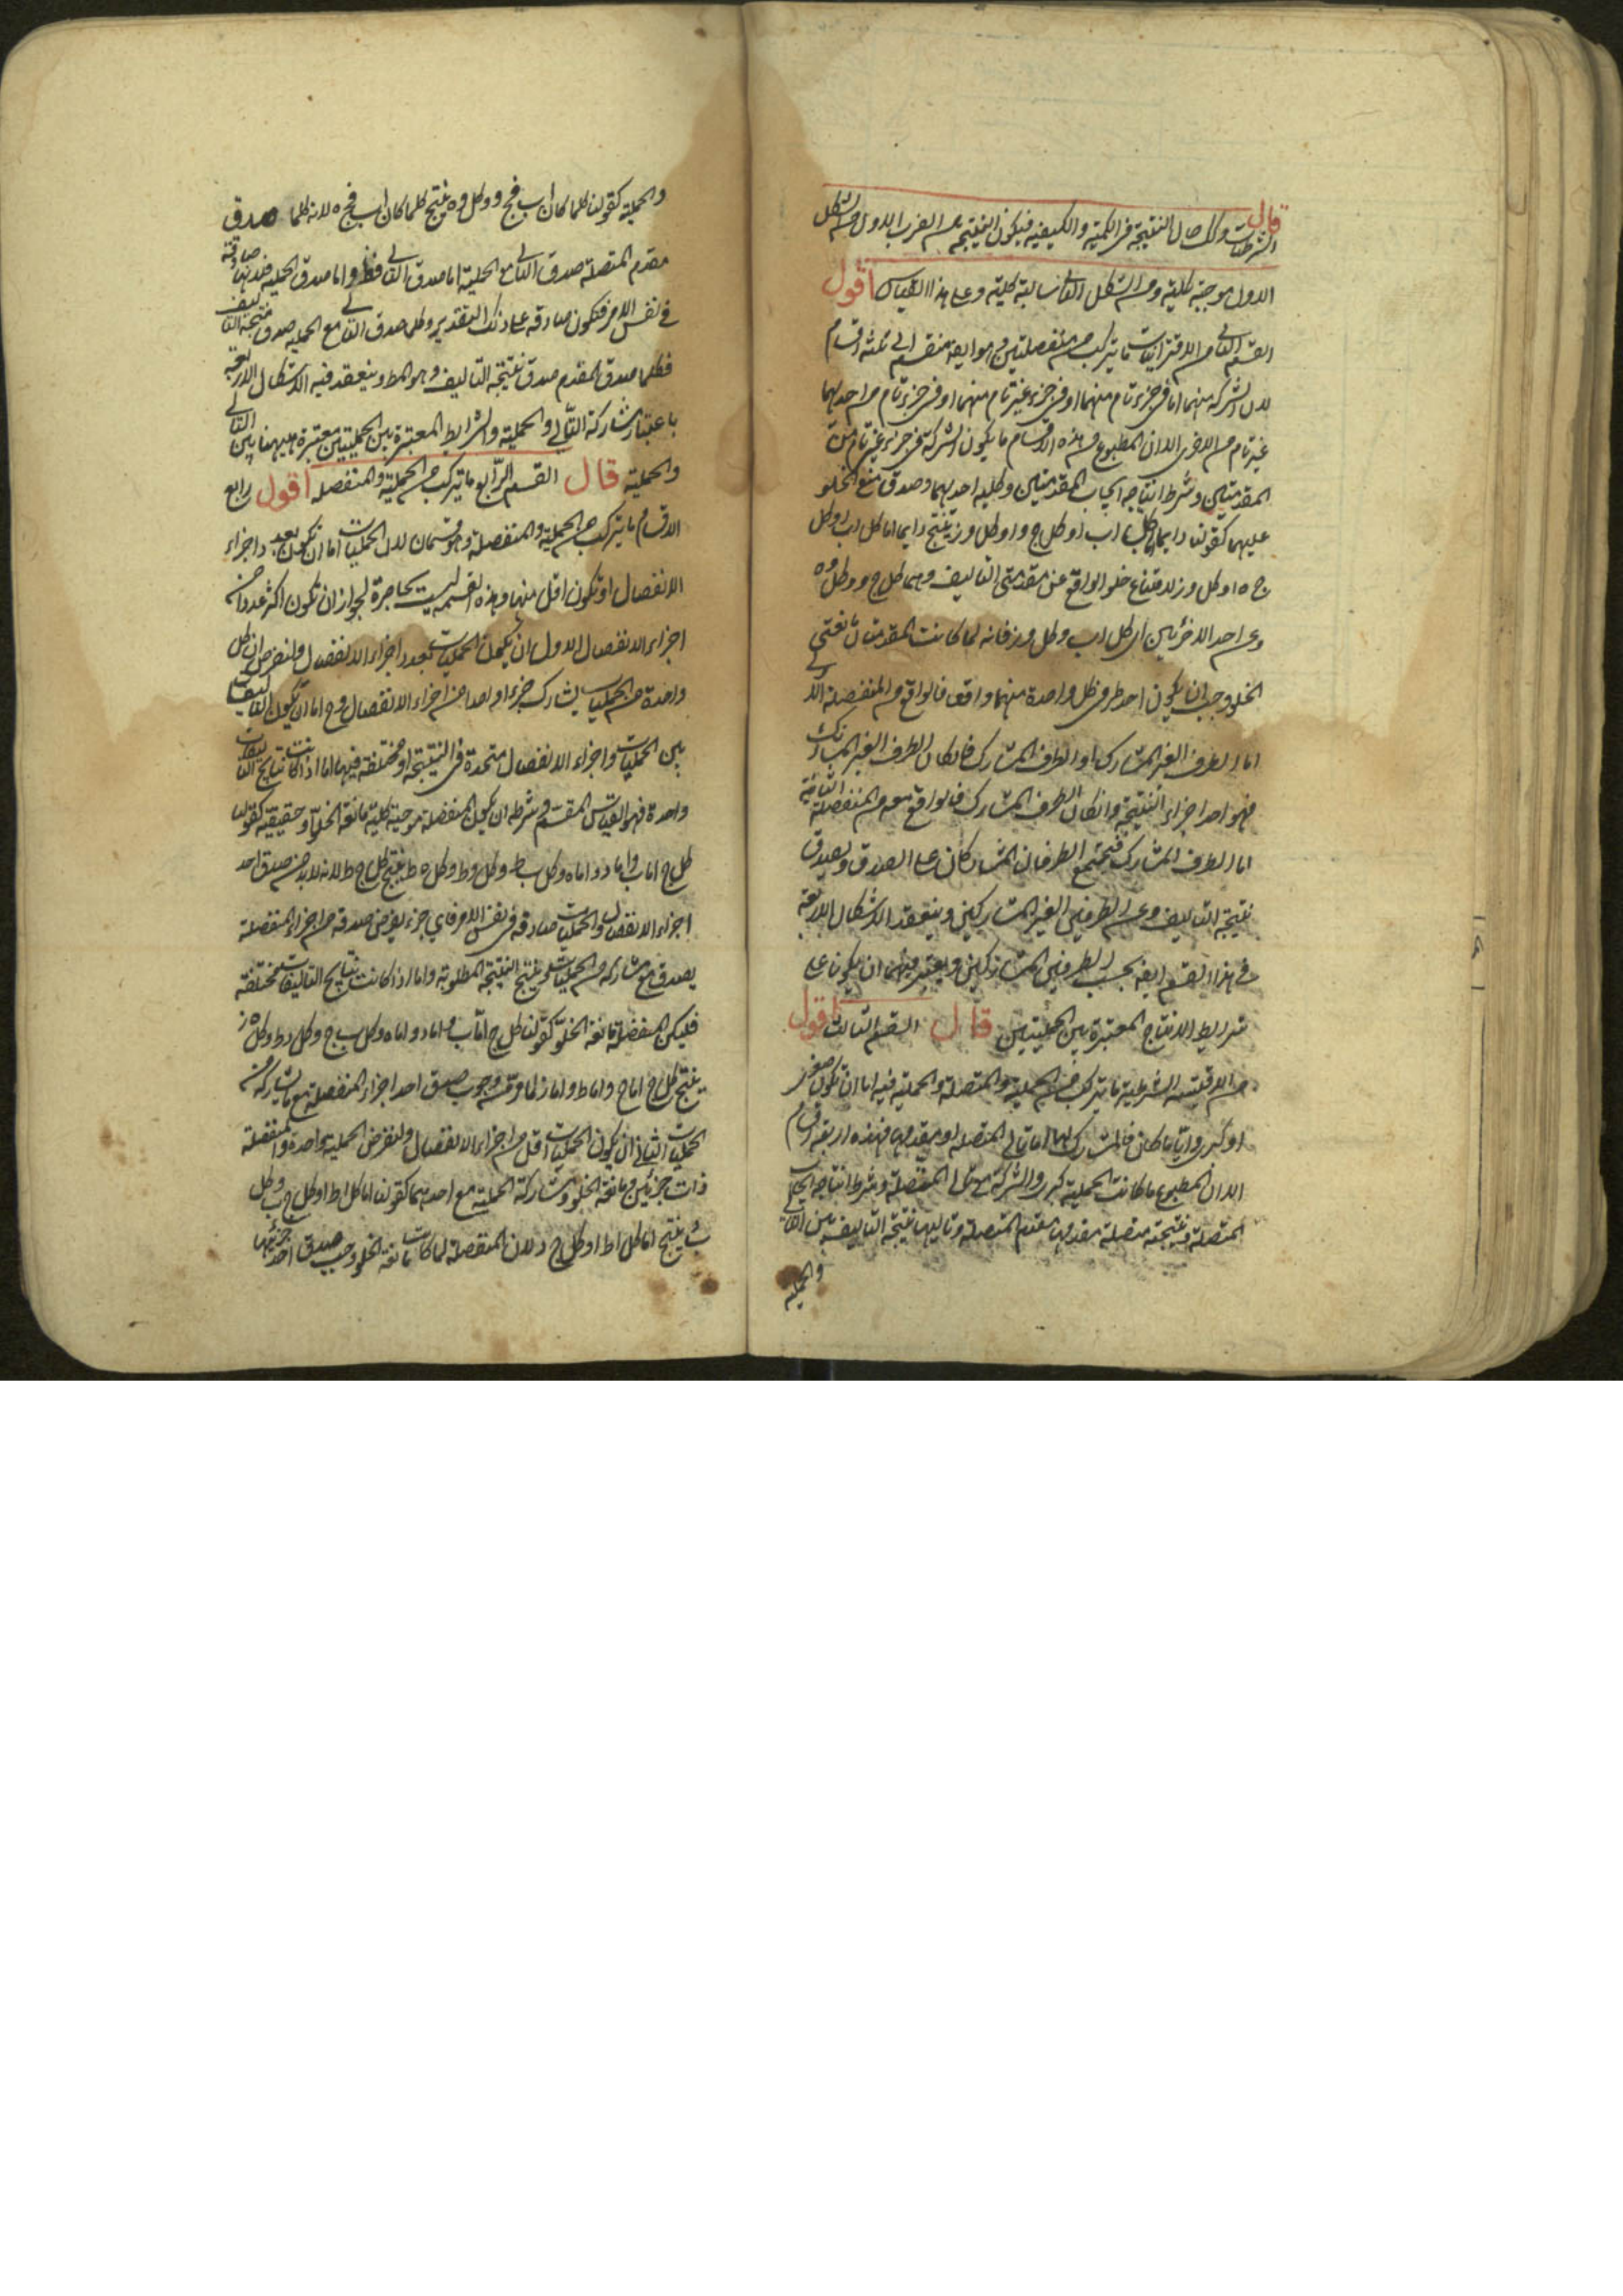 قال
الشرطيات وكل حال النتيجة فى الكمية والكيفية فيكون النتيجة من الضرب الاول من الشكل
الاول موجبة كلية ومن الشكل الثانى سالبة كلية وعلى هذا القياس اقول
القسم الثانى من الاقترانيات ما يتركب من منفصلتين وهو ايضا منقسم الى ثلثة اقسام
لان الشركة بينهما اما فى جزء تام منهما او فى جزء غير تام منهما او فى جزء تام من احديهما
غير تام من الاخرى الا ان المطبوع من هذه الاقسام ما يكون الشركة فى جزء غير تام من
المقدمتين وشرط انتاجه ايجاب المقدمتين وكلية احديهما وصدق منع الخلو
عليهما كقولنا دايما اما كل اب او كل ج د او كل د ز ينتج دايما اما كل اب او كل
ج ه او كل د ز لامتناع خلو الواقع عن مقدمتى التاليف وهما كل ج د وكل د ه
وعن احد الاخرئين اى كل اب وكل د ز فانه لما كانت المقدمتان مانعتى
الخلو وجب ان يكون احد طرفى كل واحدة منهما واقعا فالواقع من المنفصلة الاولى
اما الطرف الغير المشارك او الطرف المشارك فان كان الطرف الغير المشارك
فهو احد اجزاء النتيجة وان كان الطرف المشارك فالواقع معه من المنفصلة الثانية
اما الطرف المشارك فيجتمع الطرفان المشاركان على الصدق ويصدق
نتيجة التاليف وعن الطرفين الغير المشاركين وينعقد الاشكال الاربعة
فى هذا القسم ايضا بحسب الطرفين المشاركين ويعتبر فيهما ان يكونا على
شرايط الانتاج المعتبرة بين الحمليتين قال القسم الثالث اقول
من الاقيسة الشرطية ما يتركب من الحملية والمتصلة والحملية فيه اما ان تكون صغرى
او كبرى وايا ما كان فالمشارك لها اما تالى المتصلة او مقدمها فهذه اربعة اقسام
الا ان المطبوع ما كانت الحملية كبرى والشركة مع تالى المتصلة وشرط انتاجه ايجاب
المتصلة ونتيجته متصلة مقدمها مقدم المتصلة وتاليها نتيجة التاليف بين التالى
والحملية
والحملية كقولنا كلما كان اب فج د وكل د ه ينتج كلما كان اب فج ه لانه كلما صدق
مقدم المتصلة صدق التالى مع الحملية اما صدق التالى فظ واما صدق الحملية فلانها صادقة
فى نفس الامر فتكون صادقة على ذلك التقدير وكلما صدق التالى مع الحملية صدق نتيجة التاليف
فكلما صدق المقدم صدق نتيجة التاليف وهو المط وينعقد فيه الاشكال الاربعة
باعتبار مشاركة التالى والحملية والشرايط المعتبرة بين الحمليتين معتبرة ههنا بين التالى
والحملية قال القسم الرابع ما يتركب من الحملية والمنفصلة اقول رابع
الاقسام ما يتركب من الحملية والمنفصلة وهو قسمان لان الحمليات اما ان تكون بعدد اجزاء
الانفصال او تكون اقل منها وهذه القسمة ليست بحاصرة لجواز ان تكون اكثر عددا من
اجزاء الانفصال الاول ان يكون الحمليات بعدد اجزاء الانفصال ولنفرض ان كل
واحدة من الحمليات يشارك جزءا واحدا من اجزاء الانفصال وح اما ان يكون التاليف
بين الحمليات واجزاء الانفصال متحدة فى النتيجة او مختلفة فيها اما اذا كانت نتايج التاليفات
واحدة فهو القياس المقسم وشرطه ان يكون المنفصلة موجبة كلية مانعة الخلو او حقيقية كقولنا
كل ج اما ب واما د واما ه وكل ب ط وكل د ط وكل ه ط ينتج كل ج ط لانه لا بد من صدق احد
اجزاء الانفصال والحمليات صادقة فى نفس الامر فاى جزء يفرض صدقه من اجزاء المنفصلة
يصدق مع مشاركه من الحمليات وينتج النتيجة المطلوبة واما اذا كانت نتايج التاليفات مختلفة
فليكن المنفصلة مانعة الخلو كقولنا كل ج اما ب واما د واما ه وكل ب ج وكل د ط وكل ه ز
ينتج كل ج اما ج واما ط واما ز لما مر من وجوب صدق احد اجزاء المنفصلة مع ما يشاركه من
الحمليات الثانى ان يكون الحمليات اقل من اجزاء الانفصال ولنفرض الحملية واحدة والمنفصلة
ذات جزئين ومانعة الخلو ومشاركة الحملية مع احدهما كقولنا اما كل اط او كل ج ب وكل
ب د ينتج اما كل اط او كل ج د لان المنفصلة لما كانت مانعة الخلو وجب صدق احد جزئيها